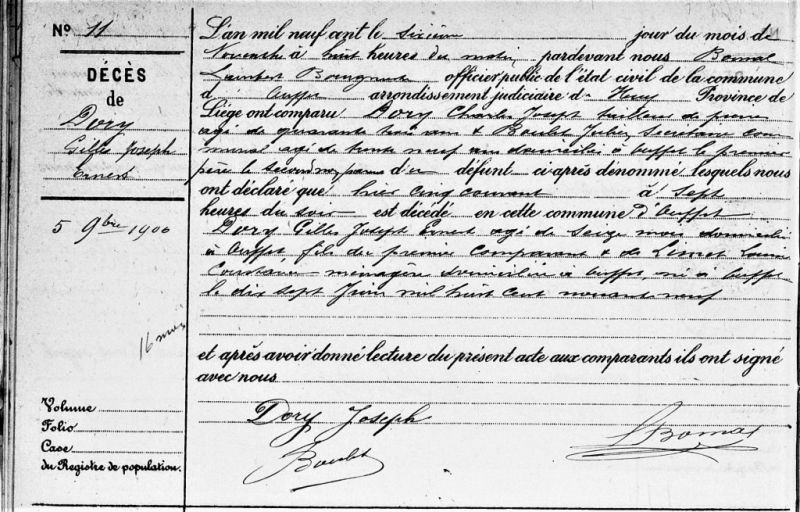 N° 11
DÉCÈS
de
Dory
Gilles Joseph
Ernest
5 9bre 1900
16 mois
Volume
Folio
Case
du Registre de population.
L'an mil neuf cent le sixième jour du mois de
Novembre à huit heures du matin pardevant nous Bomal
Lambert officier public de l'état civil de la commune
d'Ouffet arrondissement judiciaire de Huy Province de
Liége ont comparu Dory Charles Joseph tailleur de pierre
agé de quarante trois ans & Boulet Jules, Secrétaire com
munal agé de trente neuf ans domiciliés à Ouffet le premier
père le second non parent d'un défunt ci après dénommé lesquels nous
ont déclaré que hier cinq courant à sept
heures du soir est décédé en cette commune d'Ouffet
Dory Gilles Joseph Ernest agé de seize mois domicilié
à Ouffet, fils du premier comparant & de
ménagère domiciliée à Ouffet, né à Ouffet
le dix sept Juin mil huit cent nonante neuf
et après avoir donné lecture du présent acte aux comparants ils ont signé
avec nous
Dory Joseph
Boulet
LBomal